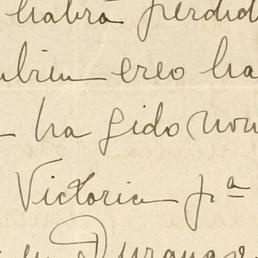 habrá perdid
creo ha
ha sido nom
Victoria pª
en Durango